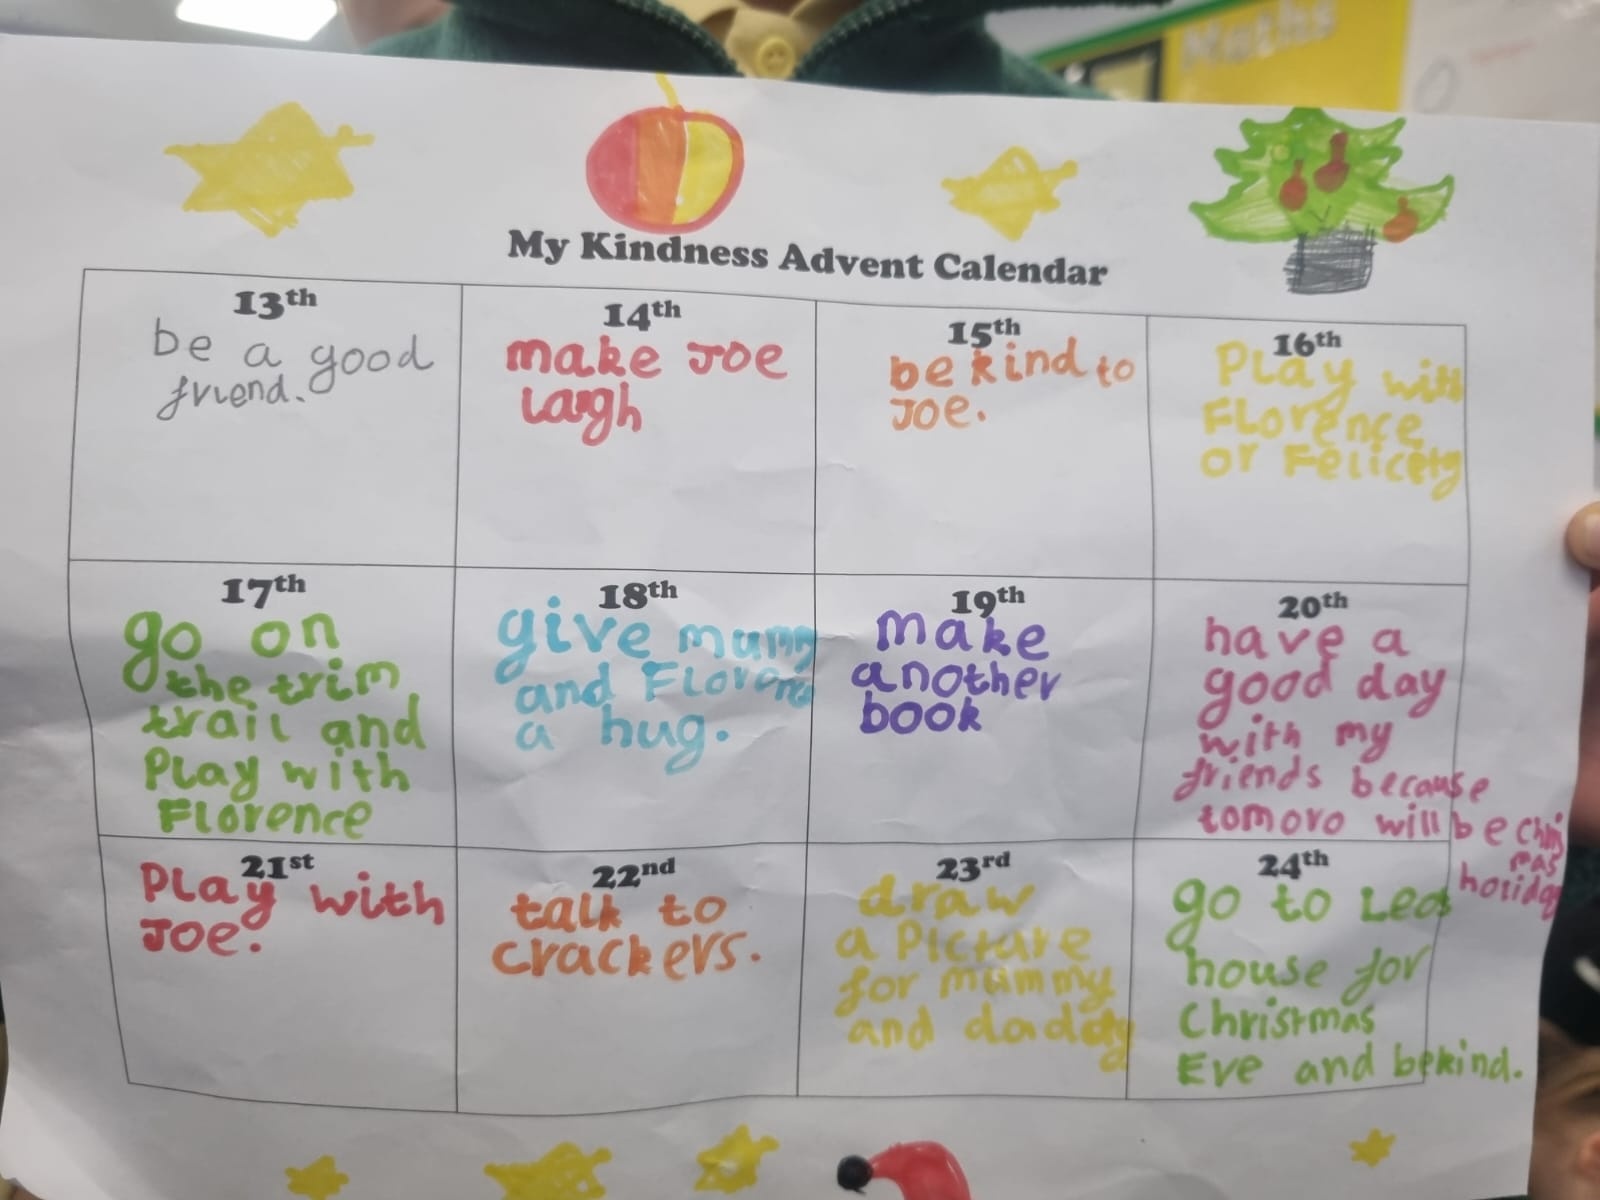 Maths
My Kindness Advent Calendar
13th
be a good
friend.
14th
make Joe
laugh
15th
be kind to
Joe.
16th
Play with
Florence
or Felicity
17th
go on
the trim
trail and
Play with
Florence
18th
give mummy
and Florence
a hug.
19th
make
another
book
20th
have a
good day
with my
friends because
tomoro will be Chris
mas
holiday
21st
Play with
Joe.
22nd
talk to
crackers.
23rd
draw
a Picture
for mummy
and daddy
24th
go to Leos
house for
Christmas
Eve and be kind.